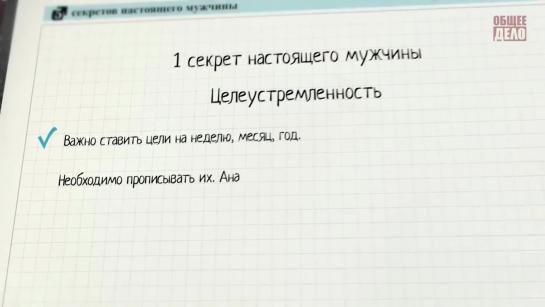 5 секретов настоящего мужчины
ОБЩЕЕ
ДЕЛО
1 секрет настоящего мужчины
Целеустремленность
Важно ставить цели на неделю, месяц, год.
Необходимо прописывать их. Ана